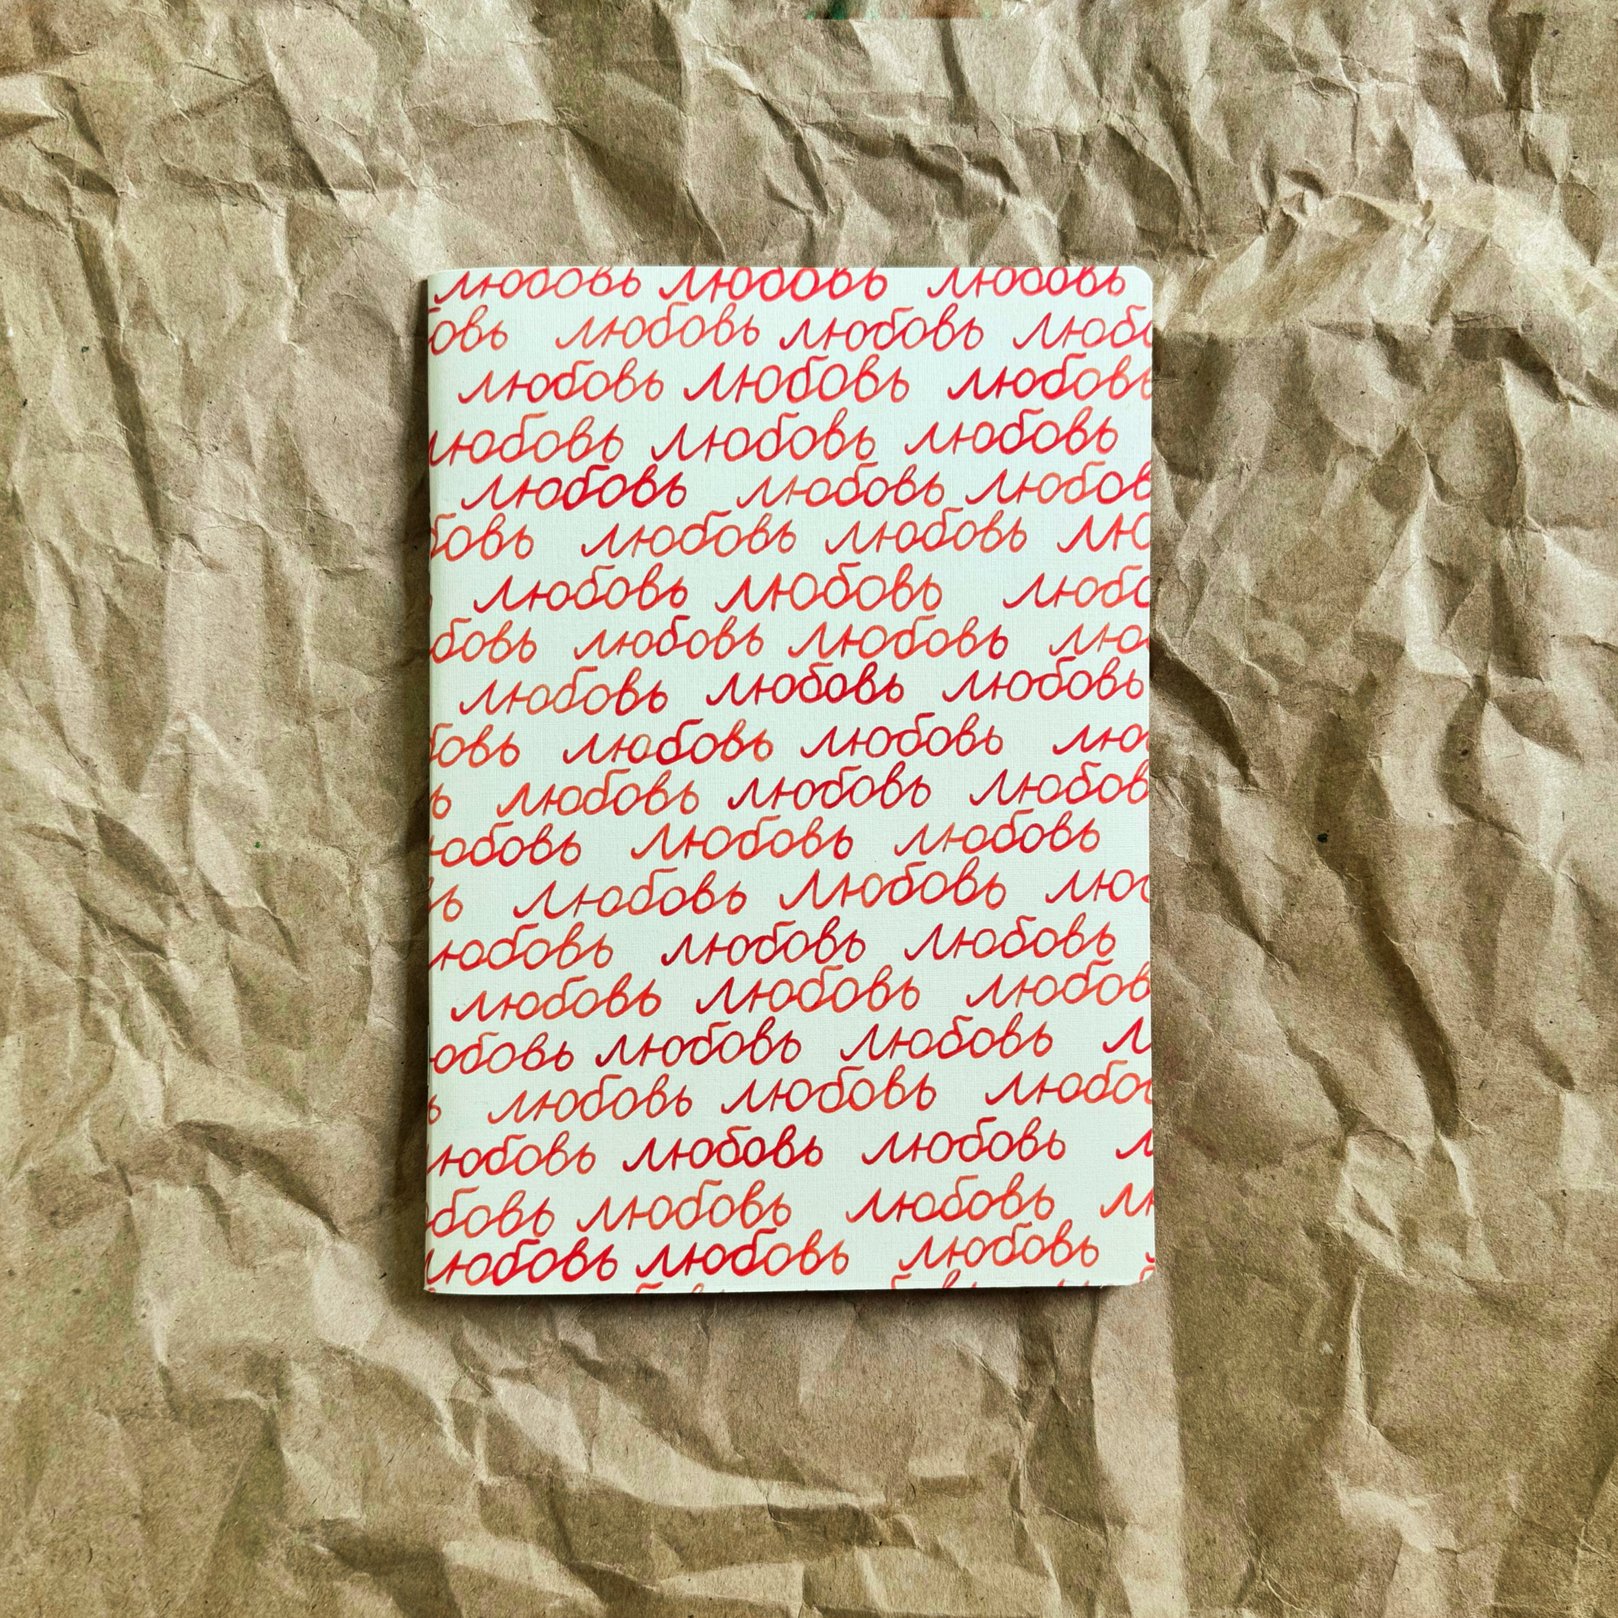 любовь любовь любовь
овь любовь любовь любо
любовь любовь любовь
любовь любовь любовь
любовь любовь любов
бовь любовь любовь лю
любовь любовь любо
бовь любовь любовь лю
любовь любовь любовь
бовь любовь любовь лю
ь любовь любовь любов
юбовь любовь любовь
вь любовь любовь люб
любовь любовь любовь
любовь любовь любов
юбовь любовь любовь л
ь любовь любовь любо
любовь любовь любовь л
бовь любовь любовь лю
любовь любовь любовь